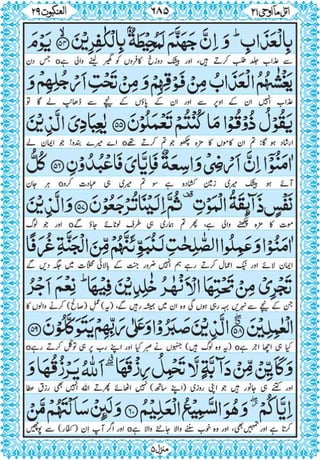 العنكبوت ٢٩
٦٨٥
اتل ما اوحی ٢١
بِالْعَذَابِ ؕ وَ اِنَّ جَهَنَّمَ لَمُحِیْطَةٌۢ بِالْكٰفِرِیْنَ ﴿۵۴﴾ یَوْمَ
سے عذاب جلد طلب کرتے ہیں، اور بیشک دوزخ کافروں کو گھیر لینے والی ہے جس دن
یَغْشٰىهُمُ الْعَذَابُ مِنْ فَوْقِهِمْ وَ مِنْ تَحْتِ اَرْجُلِهِمْ وَ
عذاب انہیں ان کے اوپر سے اور ان کے پاؤں کے نیچے سے ڈھانپ لے گا تو
یَقُوْلُ ذُوْقُوْا مَا كُنْتُمْ تَعْمَلُوْنَ ﴿۵۵﴾ یٰعِبَادِیَ الَّذِیْنَ
ارشاد ہو گا: تم ان کاموں کا مزہ چکھو جو تم کرتے تھے اے میرے بندو! جو ایمان لے
اٰمَنُوْۤا اِنَّ اَرْضِیْ وَاسِعَةٌ فَاِیَّایَ فَاعْبُدُوْنِ ﴿۵۶﴾ كُلُّ
آئے ہو بیشک میری زمین کشادہ ہے سو تم میری ہی عبادت کرو ہر جان
نَفْسٍ ذَآىِٕقَةُ الْمَوْتِ ۫ ثُمَّ اِلَیْنَا تُرْجَعُوْنَ ﴿۵۷﴾ وَ الَّذِیْنَ
موت کا مزہ چکھنے والی ہے، پھر تم ہماری ہی طرف لوٹائے جاؤ گے اور جو لوگ
اٰمَنُوْا وَ عَمِلُوا الصّٰلِحٰتِ لَنُبَوِّئَنَّهُمْ مِّنَ الْجَنَّةِ غُرَفًا
ایمان لائے اور نیک اعمال کرتے رہے ہم انہیں ضرور جنت کے بالائی محلات میں جگہ دیں گے
تَجْرِیْ مِنْ تَحْتِهَا الْاَنْهٰرُ خٰلِدِیْنَ فِیْهَا ؕ نِعْمَ اَجْرُ
جن کے نیچے سے نہریں بہہ رہی ہوں گی وہ ان میں ہمیشہ رہیں گے، یہ (عملِ) (صالح) کرنے والوں کا
الْعٰمِلِیْنَ ﴿۵۸﴾ الَّذِیْنَ صَبَرُوْا وَ عَلٰى رَبِّهِمْ یَتَوَكَّلُوْنَ ﴿۵۹﴾
کیا ہی اچھا اجر ہے (یہ وہ لوگ ہیں) جنہوں نے صبر کیا اور اپنے رب پر ہی توکل کرتے رہے
وَ كَاَیِّنْ مِّنْ دَآبَّةٍ لَّا تَحْمِلُ رِزْقَهَا ۖۗ اَللّٰهُ یَرْزُقُهَا وَ
اور کتنے ہی جانور ہیں جو اپنی روزی (اپنے ساتھ) نہیں اٹھائے پھرتے اللہ انہیں بھی رزق عطا
اِیَّاكُمْ ۖؗ وَ هُوَ السَّمِیْعُ الْعَلِیْمُ ﴿۶۰﴾ وَ لَىِٕنْ سَاَلْتَهُمْ مَّنْ
کرتا ہے اور تمہیں بھی، اور وہ خوب سننے والا جاننے والا ہے اور اگر آپ اِن (کفار) سے پوچھیں
منزل ۵